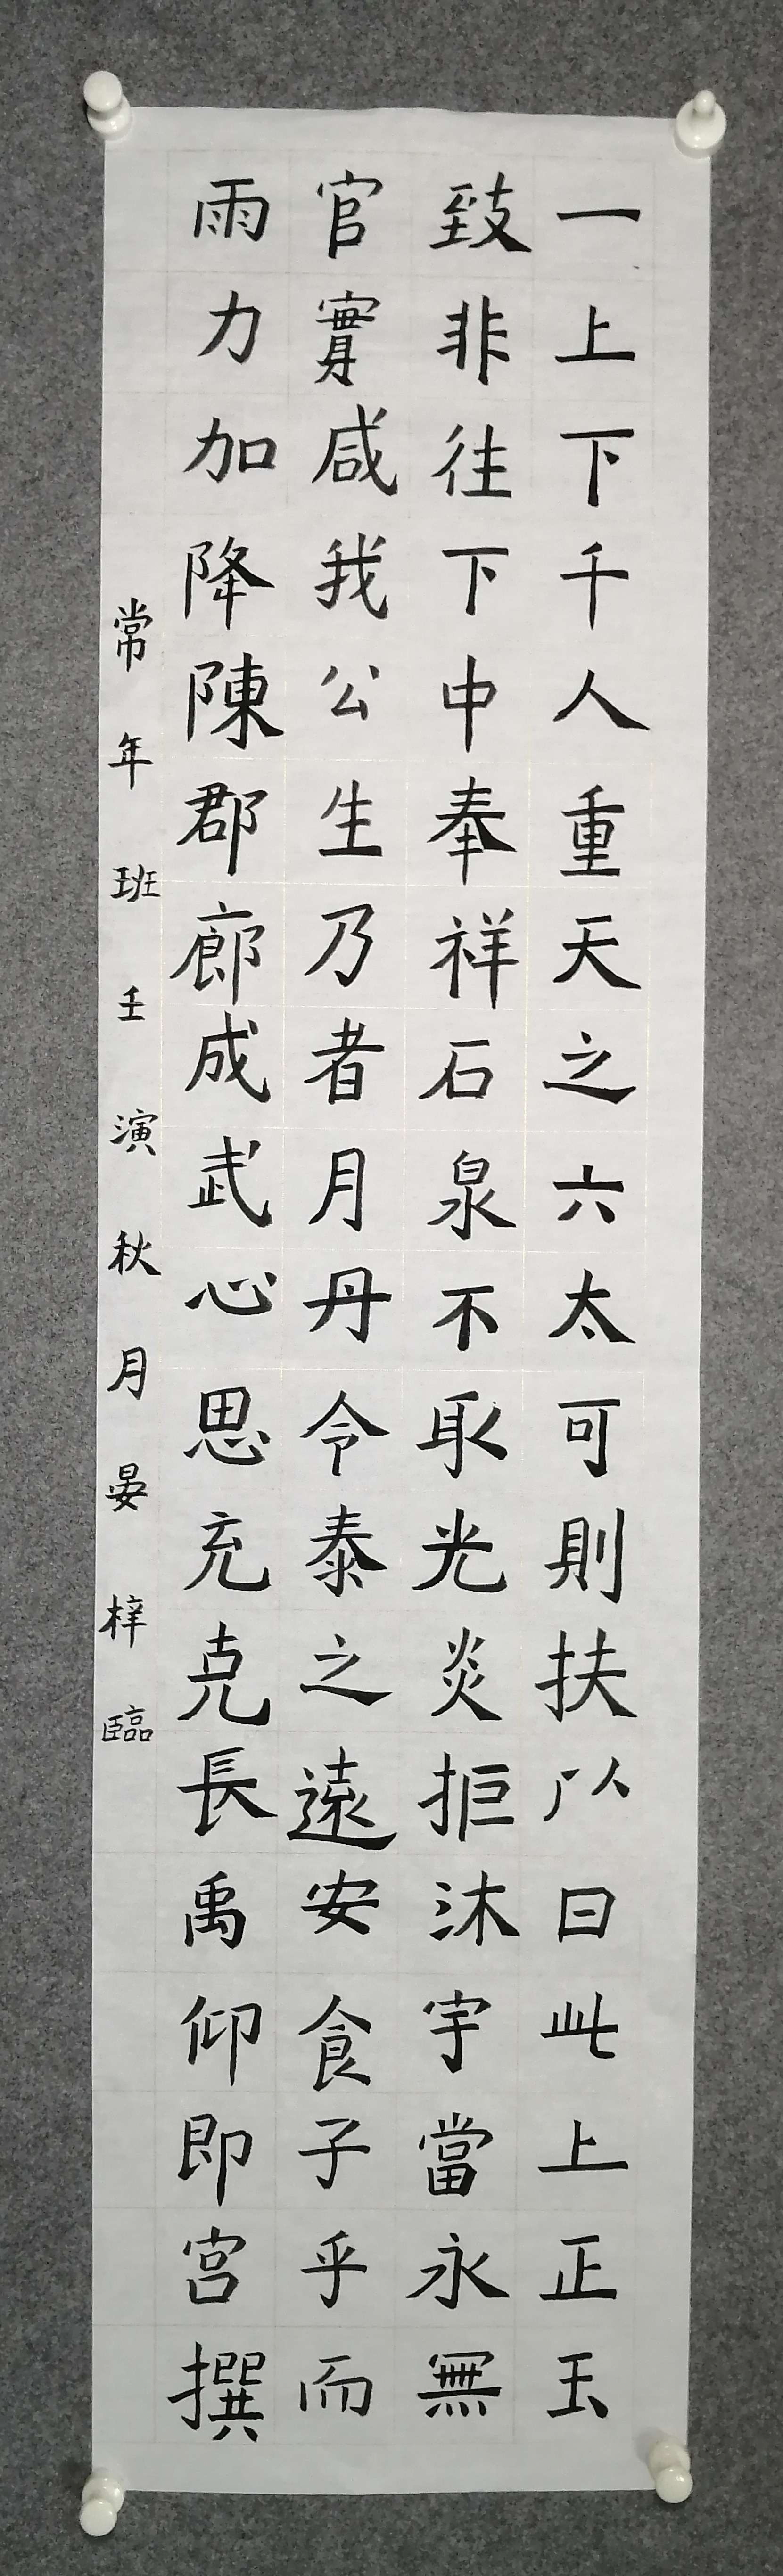 一上下千人重天之六太可則扶以曰此上正玉
致非往下中奉祥石泉不取光炎拒沐宇當永無
官實咸我公生乃者月丹令泰之遠安食子乎而
雨力加降陳郡廊成武心思充克長禹仰即宮撰
常年班壬演秋月晏梓臨